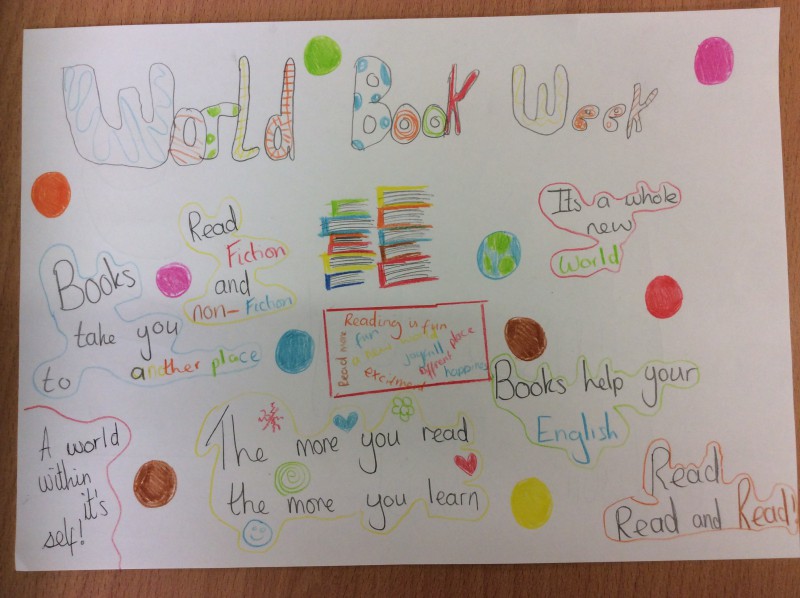 World Book Week
Read
Fiction
and
non-Fiction
It's a whole
new
World
Books
take you
to another place
Reading is fun
Read more
fun
a new world
joyfull
diffrent place
happiness
excitment
Books help your
English
A world
within
it's
self!
The more you read
the more you learn
Read
Read and Read!